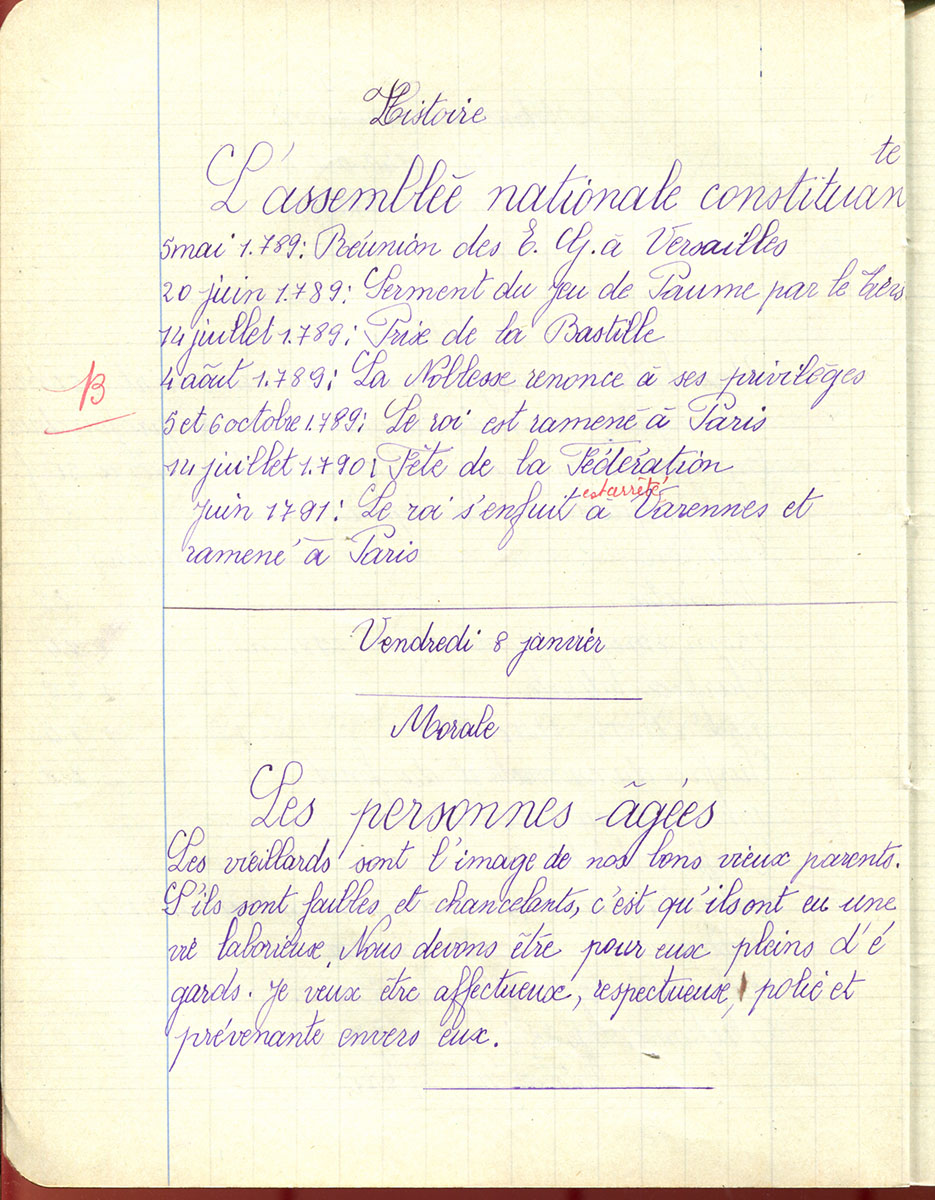 Histoire
te
L'assemblée nationale constituan
5 mai 1.789: Réunion des E. G. à Versailles
20 juin 1.789: Serment du jeu de Paume par le tiers
14 juillet 1.789: Prise de la Bastille
4 août 1.789: La Noblesse renonce à ses privilèges
B
5 et 6 octobre 1.789: Le roi est ramené à Paris
14 juillet 1.790: Fête de la Fédération
est arrêté
Juin 1791: Le roi s'enfuit à Varennes et
ramené à Paris
Vendredi 8 janvier
Morale
Les personnes âgées
Les vieillards sont l'image de nos bons vieux parents.
S'ils sont faibles et chancelants, c'est qu'ils ont eu une
vie laborieuse. Nous devons être pour eux pleins d'é
gards. Je veux être affectueux, respectueuse, polie et
prévenante envers eux.